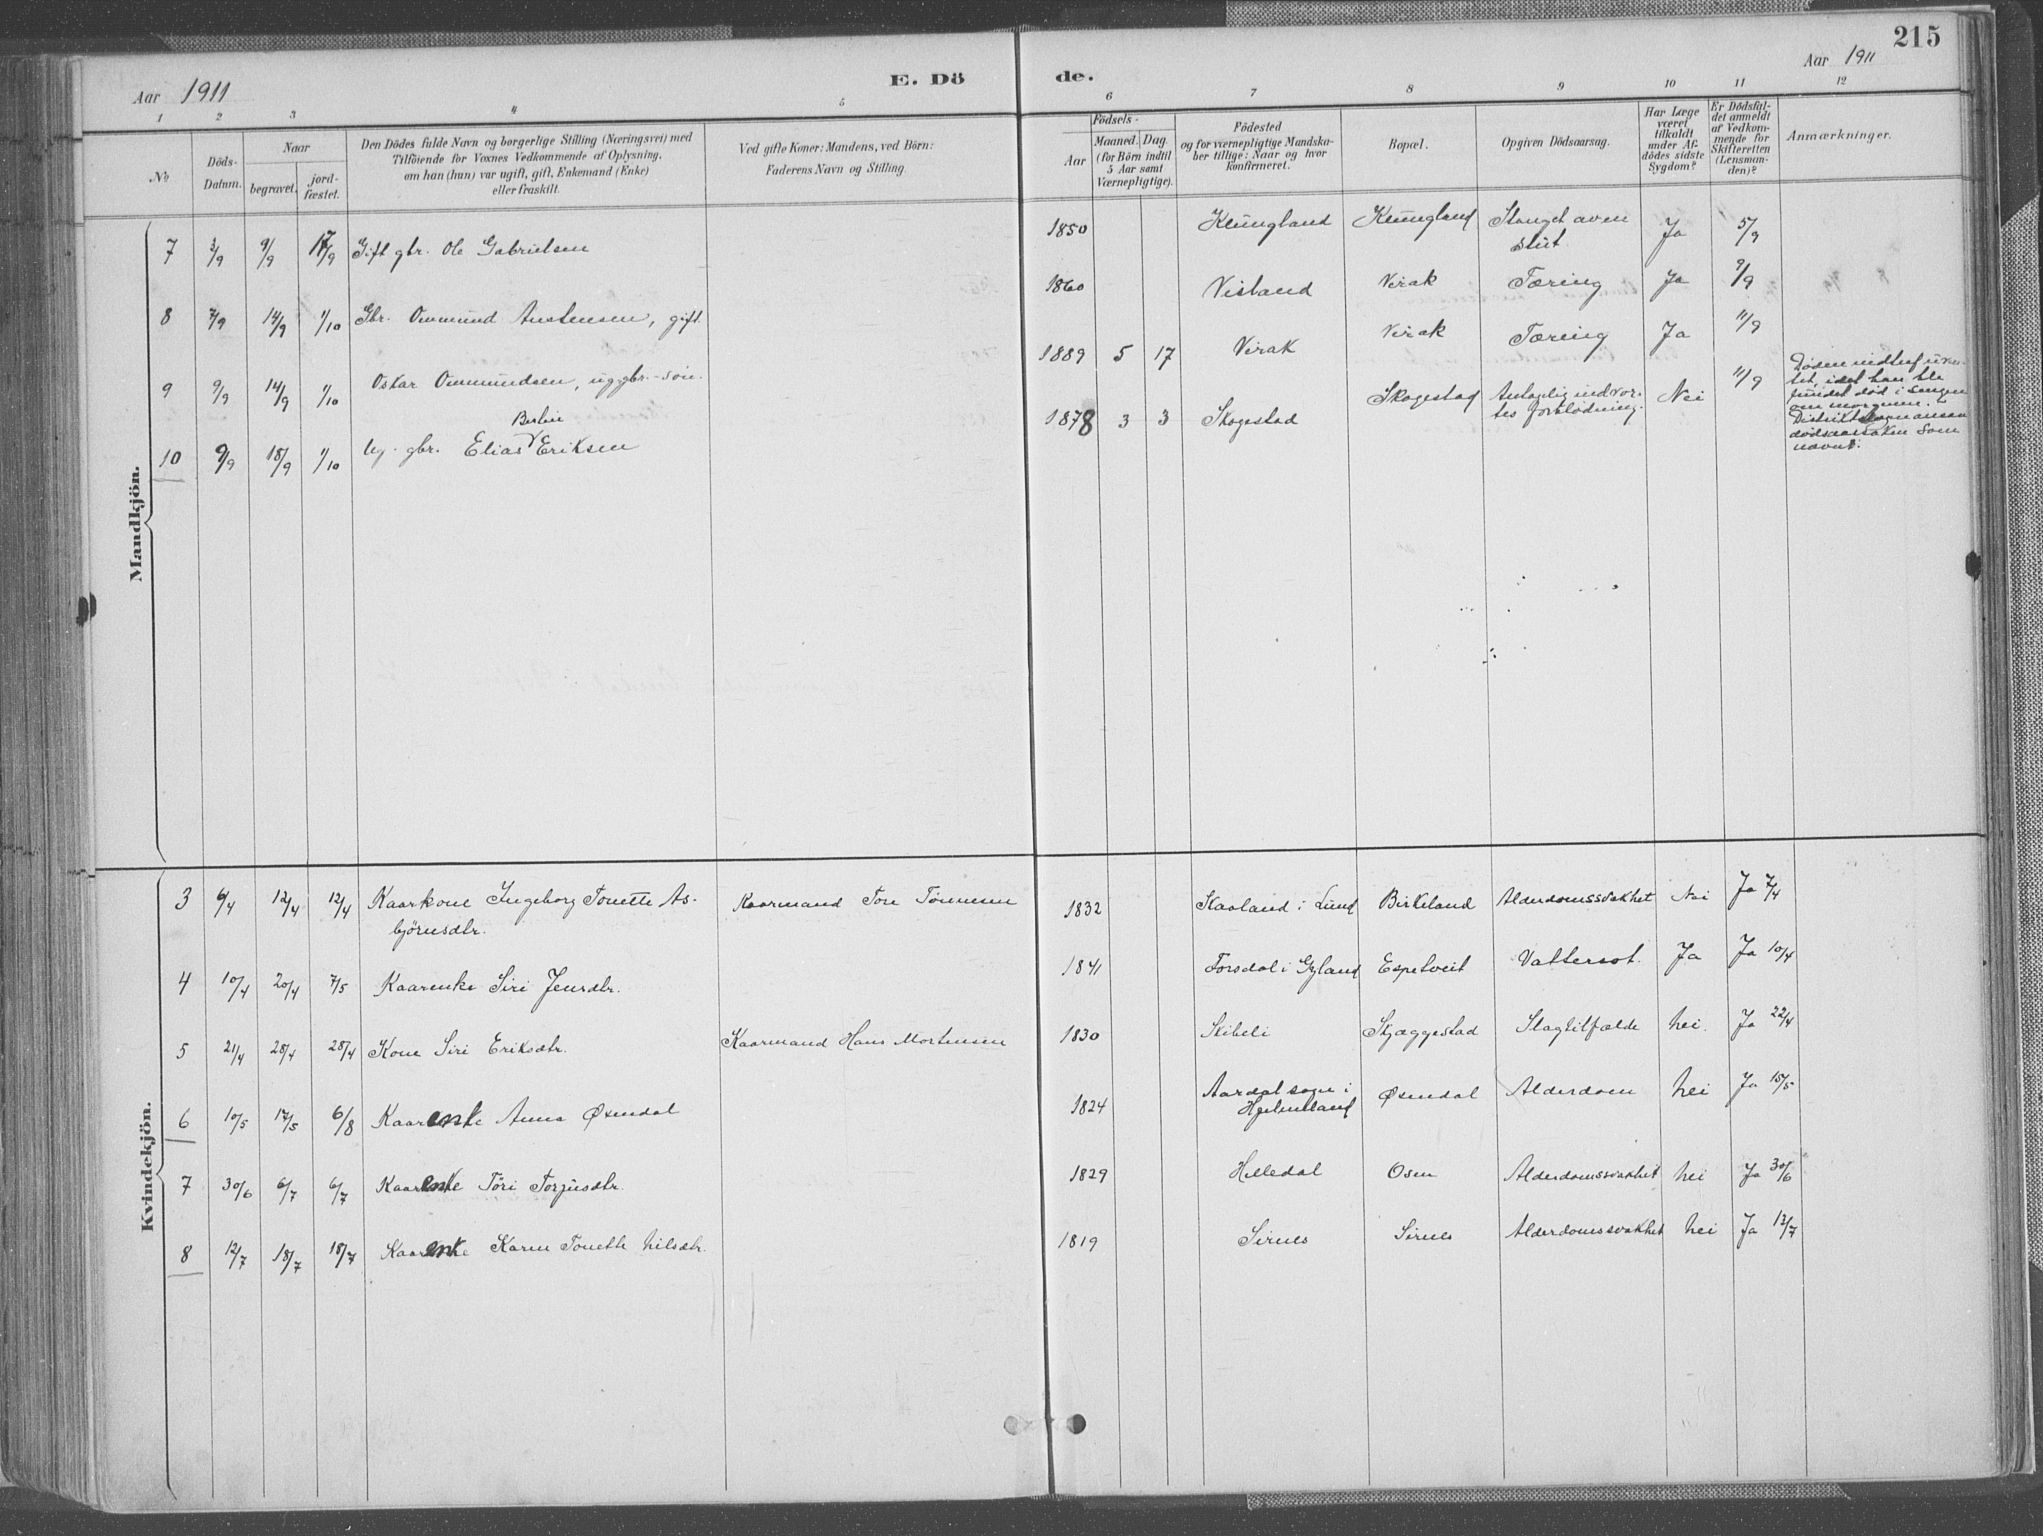 215
Aar 1911
E. Dö de.
Aar 1911
1 2 3 4 5 6 7 8 9 10 11 12
№
Döds-
Datum.
Naar
begravet.
jord-
fæstet.
Den Dödes fulde Navn og borgerlige Stilling (Næringsvei) med
Tilföiende for Voxnes Vedkommende af Oplysning,
om han (hun) var ugift, gift, Enkemand (Enke)
eller fraskilt.
Ved gifte Koner: Mandens, ved Börn:
Faderens Navn og Stilling.
Födsels-
Aar
Maaned. Dag.
(for Börn indtil
5 Aar samt
Værnepligtige).
Födested
og for værnepligtige Mandska-
ber tillige: Naar og hvor
konfirmeret.
Bopæl.
Opgiven Dödsaarsag.
Har Læge
været
tilkaldt
under Af-
dödes sidste
Sygdom?
Er Dödsfal-
det anmeldt
af Vedkom-
mende for
Skifteretten
(Lensman-
den)?
Anmærkninger.
Mandkjön.
7 3/9 9/9 17/9 Gift gbr. Ole Gabrielsen 1850 Klungland Klungland Stanget av en Ja 5/9
stut.
8 7/9 14/9 1/10 Gbr. Ommund Austensen, gift. 1860 Visland Virak Tæring Ja 9/9
9 9/9 14/9 1/10 Oskar Ommundsen, ug. gbr.-søn. 1889 5 17 Virak Virak Tæring Ja 11/9
Berlin
10 9/9 18/9 1/10 Ug. gbr. Elias Eriksen 1878 3 3 Skogestad Skogestad Antagelig indvor- Nei 11/9
tes forblødning.
Døden indtraf uven-
tet, idet han ble
fundet død i sengen
om morgenen.
dødsaarsaken som
nævnt.
Kvindekjön.
3 6/4 12/4 12/4 Kaarkone Ingeborg Tonette As- Kaarmand Tore Tønnesen 1832 Skaaland i Lund Birkeland Alderdomssvakhet Nei Ja 7/4
bjørnsdtr.
4 10/4 20/4 7/5 Kaarenke Siri Jensdtr. 1841 Torsdal i Gyland Espetveit Vattersot. Ja Ja 10/4
5 21/4 28/4 28/4 Kone Siri Eriksdtr. Kaarmand Hans Mortensen 1830 Skibeli Skjæggestad Slagtilfælde Nei. Ja 22/4
6 10/5 17/5 6/8 Kaarenke Anna Øsendal 1824 Aardal sogn i Øsendal Alderdom Nei Ja 15/5
Hjelmeland
7 30/6 6/7 6/7 Kaarenke Tøri Torjusdtr. 1829 Helledal Osen Alderdomssvakhet Nei Ja 30/6
8 12/7 18/7 18/7 Kaarenke Karen Tonette Nilsdtr. 1819 Sirnes Sirnes Alderdomssvakhet Nei Ja 13/7